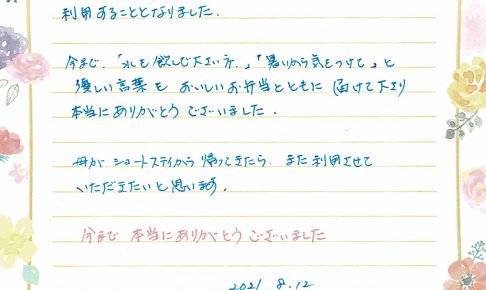 利用することとなりました.
今まで、「水を飲んで下さい方.」「暑いから気をつけて」と
優しい言葉を おいしいお弁当とともに 届けて下さり
本当にありがとう ございました.
母が ショートステイから 帰ってきたら、また利用させて
いただきたいと思います.
今まで 本当にありがとう ございました
2021 8.12